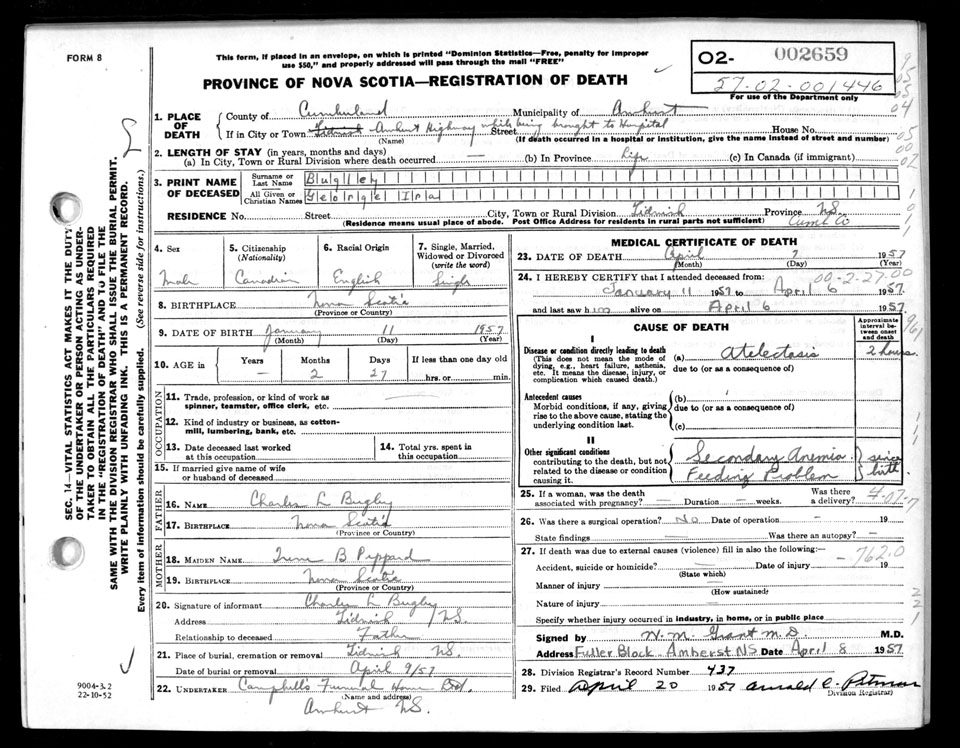 FORM 8
This form, if placed in an envelope, on which is printed "Dominion Statistics—Free, penalty for improper
use $50," and properly addressed will pass through the mail "FREE"
PROVINCE OF NOVA SCOTIA—REGISTRATION OF DEATH
02- 002659
57-02-001446
For use of the Department only
1. PLACE OF DEATH
County of Cumberland Municipality of Amherst
If in City or Town Tidnish Amherst Highway while being brought to Hospital Street House No.
(Name) (If death occurred in a hospital or institution, give the name instead of street and number)
2. LENGTH OF STAY (in years, months and days)
(a) In City, Town or Rural Division where death occurred — (b) In Province Life (c) In Canada (if immigrant)
3. PRINT NAME OF DECEASED
Surname or Last Name Bugley
All Given or Christian Names George Ira
RESIDENCE No. Street City, Town or Rural Division Tidnish Province N.S.
(Residence means usual place of abode. Post Office Address for residents in rural parts not sufficient) Cumb Co
4. Sex 5. Citizenship (Nationality) 6. Racial Origin 7. Single, Married, Widowed or Divorced (write the word)
Male Canadian English Single
8. BIRTHPLACE Nova Scotia
(Province or Country)
9. DATE OF BIRTH January 11 1957
(Month) (Day) (Year)
10. AGE in Years Months Days If less than one day old
— 2 27 hrs. or min.
OCCUPATION
11. Trade, profession, or kind of work as
spinner, teamster, office clerk, etc.
12. Kind of industry or business, as cotton-
mill, lumbering, bank, etc.
13. Date deceased last worked at this occupation
14. Total yrs. spent in this occupation
15. If married give name of wife
or husband of deceased
FATHER
16. NAME Charles L Bugley
17. BIRTHPLACE Nova Scotia
(Province or Country)
MOTHER
18. MAIDEN NAME B Peppard
19. BIRTHPLACE Nova Scotia
(Province or Country)
20. Signature of informant Charles L Bugley
Address Tidnish NS
Relationship to deceased Father
21. Place of burial, cremation or removal Tidnish NS.
Date of burial or removal April 9/57
22. UNDERTAKER Campbell's Funeral Home Ltd.
(Name and address)
Amherst NS.
MEDICAL CERTIFICATE OF DEATH
23. DATE OF DEATH April 7 1957
(Month) (Day) (Year)
24. I HEREBY CERTIFY that I attended deceased from: 00-2-27.00
January 11 1957 to April 6 1957
and last saw him alive on April 6 1957
CAUSE OF DEATH
Approximate interval between onset and death
I
Disease or condition directly leading to death
(This does not mean the mode of
dying, e.g., heart failure, asthenia,
etc. It means the disease, injury, or
complication which caused death.)
(a) Atelectasis 2 hours.
due to (or as a consequence of)
Antecedent causes
Morbid conditions, if any, giving
rise to the above cause, stating the
underlying condition last.
(b)
due to (or as a consequence of)
(c)
II
Other significant conditions
contributing to the death, but not
related to the disease or condition
causing it.
Secondary Anemia since
Feeding Problem birth
25. If a woman, was the death
associated with pregnancy? — Duration — weeks. Was there a delivery?
26. Was there a surgical operation? No Date of operation — 19
State findings — Was there an autopsy? —
27. If death was due to external causes (violence) fill in also the following:— 762.0
Accident, suicide or homicide? — Date of injury 19
(State which)
Manner of injury —
(How sustained)
Nature of injury —
Specify whether injury occurred in industry, in home, or in public place
Signed by N. M. Grant M.D. M.D.
Address Fuller Block Amherst NS Date April 8 1957
28. Division Registrar's Record Number 437
29. Filed April 20 1957 Arnold C. Pitman
(Division Registrar)
SEC. 14—VITAL STATISTICS ACT MAKES IT THE DUTY
OF THE UNDERTAKER OR PERSON ACTING AS UNDER-
TAKER TO OBTAIN ALL THE PARTICULARS REQUIRED
IN THE "REGISTRATION OF DEATH" AND TO FILE THE
SAME WITH THE DIVISION REGISTRAR WHO SHALL ISSUE THE BURIAL PERMIT.
WRITE PLAINLY WITH UNFADING INK. THIS IS A PERMANENT RECORD.
Every item of information should be carefully supplied. (See reverse side for instructions.)
9004-3.2
22-10-52